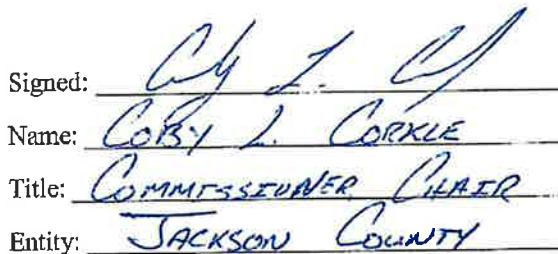 Signed:
Name: COBY L. CORKLE
Title: COMMISSIONER CHAIR
Entity: JACKSON COUNTY